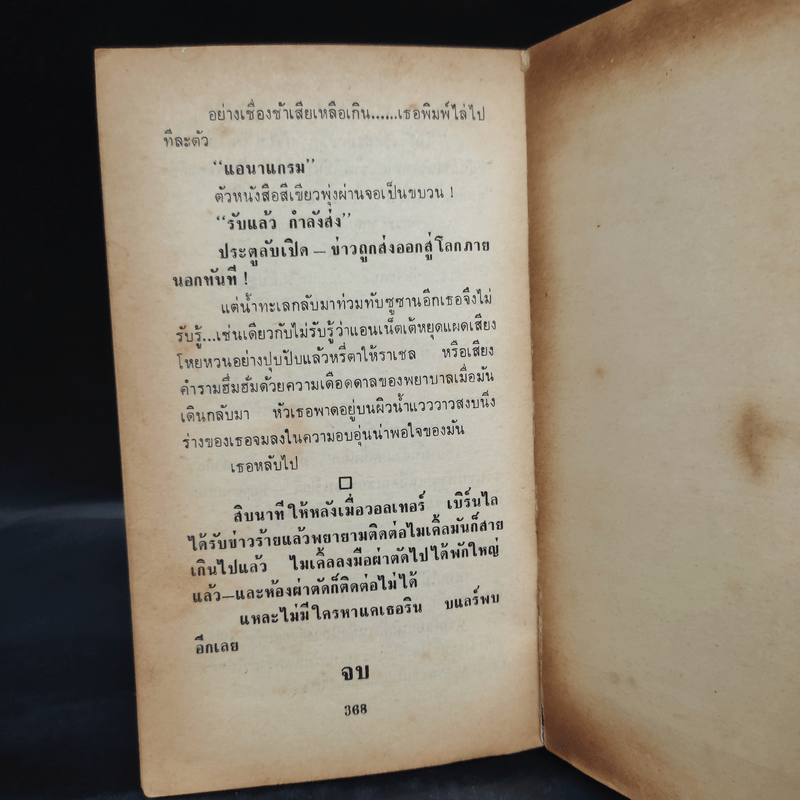 อย่างเชื่องช้าเสียเหลือเกิน......เธอพิมพ์ไล่ไป
ทีละตัว
“แอนาแกรม”
ตัวหนังสือสีเขียวพุ่งผ่านจอเป็นขบวน !
“รับแล้ว กำลังส่ง”
ประตูลับเปิด – ข่าวถูกส่งออกสู่โลกภาย
นอกทันที !
แต่น้ำทะเลกลับมาท่วมทับซูซานอีกเธอจึงไม่
รับรู้...เช่นเดียวกับไม่รับรู้ว่าแอนเน็ตเต้หยุดแผดเสียง
โหยหวนอย่างปุบปับแล้วหรี่ตาให้ราเชล หรือเสียง
คำรามฮึ่มฮั่มด้วยความเดือดดาลของพยาบาลเมื่อมัน
เดินกลับมา หัวเธอพาดอยู่บนผิวน้ำแวววาวสงบนิ่ง
ร่างของเธอจมลงในความอบอุ่นน่าพอใจของมัน
เธอหลับไป
สิบนาทีให้หลังเมื่อวอลเทอร์ เบิร์นไล
ได้รับข่าวร้ายแล้วพยายามติดต่อไมเคิ้ลมันก็สาย
เกินไปแล้ว ไมเคิ้ลลงมือผ่าตัดไปได้พักใหญ่
แล้ว–และห้องผ่าตัดก็ติดต่อไม่ได้
แหละไม่มีใครหาแคเธอริน บแลร์พบ
อีกเลย
จบ
368